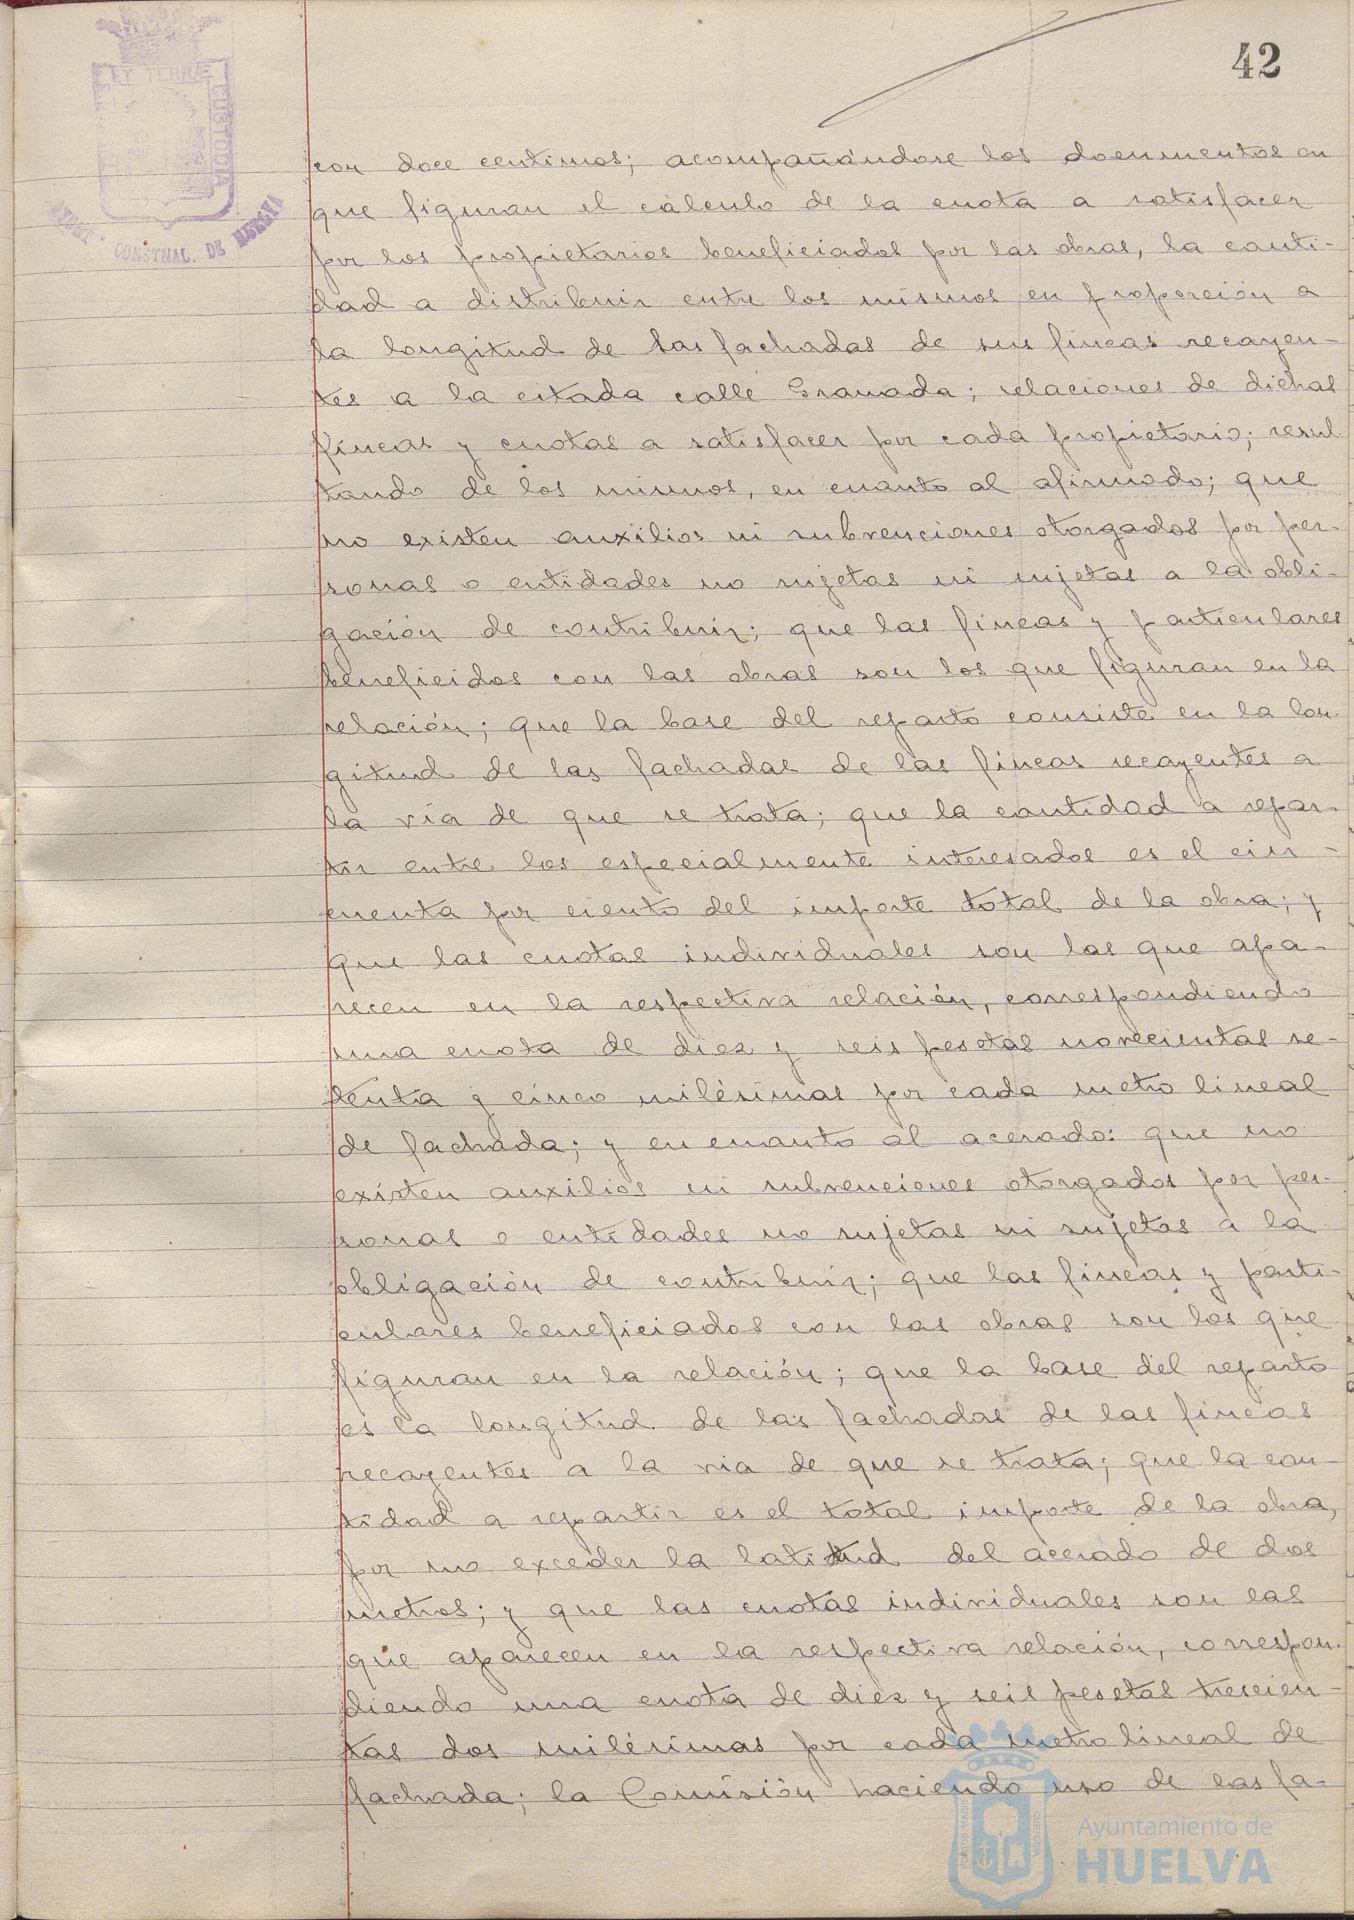 42
ET TERRÆ
CUSTODIA
AYUNT. CONSTNAL. DE HUELVA
con doce centimos; acompañándose los documentos en
que figuran el cálculo de la cuota a satisfacer
por los propietarios beneficiados por las obras, la canti-
dad a distribuir entre los mismos en proporción a
la longitud de las fachadas de sus fincas recayen-
tes a la citada calle Granada; relaciones de dichas
fincas y cuotas a satisfacer por cada propietario; resul-
tando de los mismos, en cuanto al afirmado; que
no existen auxilios ni subvenciones otorgados por per-
sonas o entidades no sujetas ni sujetas a la obli-
gación de contribuir; que las fincas y particulares
beneficidos con las obras son los que figuran en la
relación; que la base del reparto consiste en la lon-
gitud de las fachadas de las fincas recayentes a
la vía de que se trata; que la cantidad a repar-
tir entre los especialmente interesados es el cin-
cuenta por ciento del importe total de la obra; y
que las cuotas individuales son las que apa-
recen en la respectiva relación, correspondiendo
una cuota de diez y seis pesetas novecientas se-
tenta y cinco milésimas por cada metro lineal
de fachada; y en cuanto al acerado: que no
existen auxilios ni subvenciones otorgados por per-
sonas o entidades no sujetas ni sujetas a la
obligación de contribuir; que las fincas y parti-
culares beneficiados con las obras son los que
figuran en la relación; que la base del reparto
es la longitud de las fachadas de las fincas
recayentes a la via de que se trata; que la can-
tidad a repartir es el total importe de la obra,
por no exceder la latitud del acerado de dos
metros; y que las cuotas individuales son las
que aparecen en la respectiva relación, correspon-
diendo una cuota de diez y seis pesetas trescien-
tas dos milésimas por cada metro lineal de
fachada; la Comisión haciendo uso de las fa-
Ayuntamiento de
HUELVA